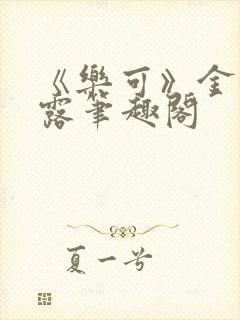 《樂可》金
露笔趣閣
夏一兮